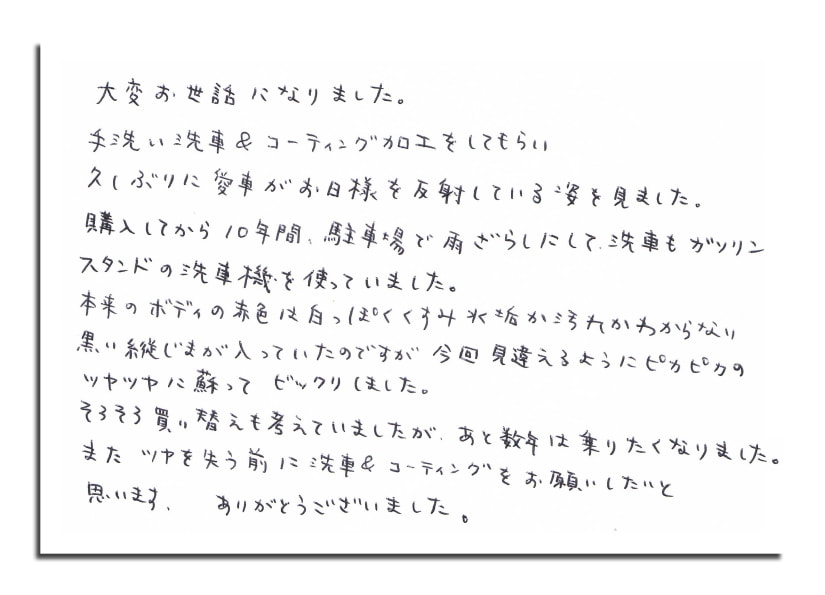 大変お世話になりました。
手洗い洗車&コーティング加工をしてもらい
久しぶりに愛車がお日様を反射している姿を見ました。
購入してから10年間、駐車場で雨ざらしにして、洗車もガソリン
スタンドの洗車機を使っていました。
本来のボディの赤色は白っぽくくすみ水垢か汚れかわからない
黒い縦じまが入っていたのですが今回見違えるようにピカピカの
ツヤツヤに蘇ってビックリしました。
そろそろ買い替えも考えていましたが、あと数年は乗りたくなりました。
またツヤを失う前に洗車&コーティングをお願いしたいと
思います。 ありがとうございました。